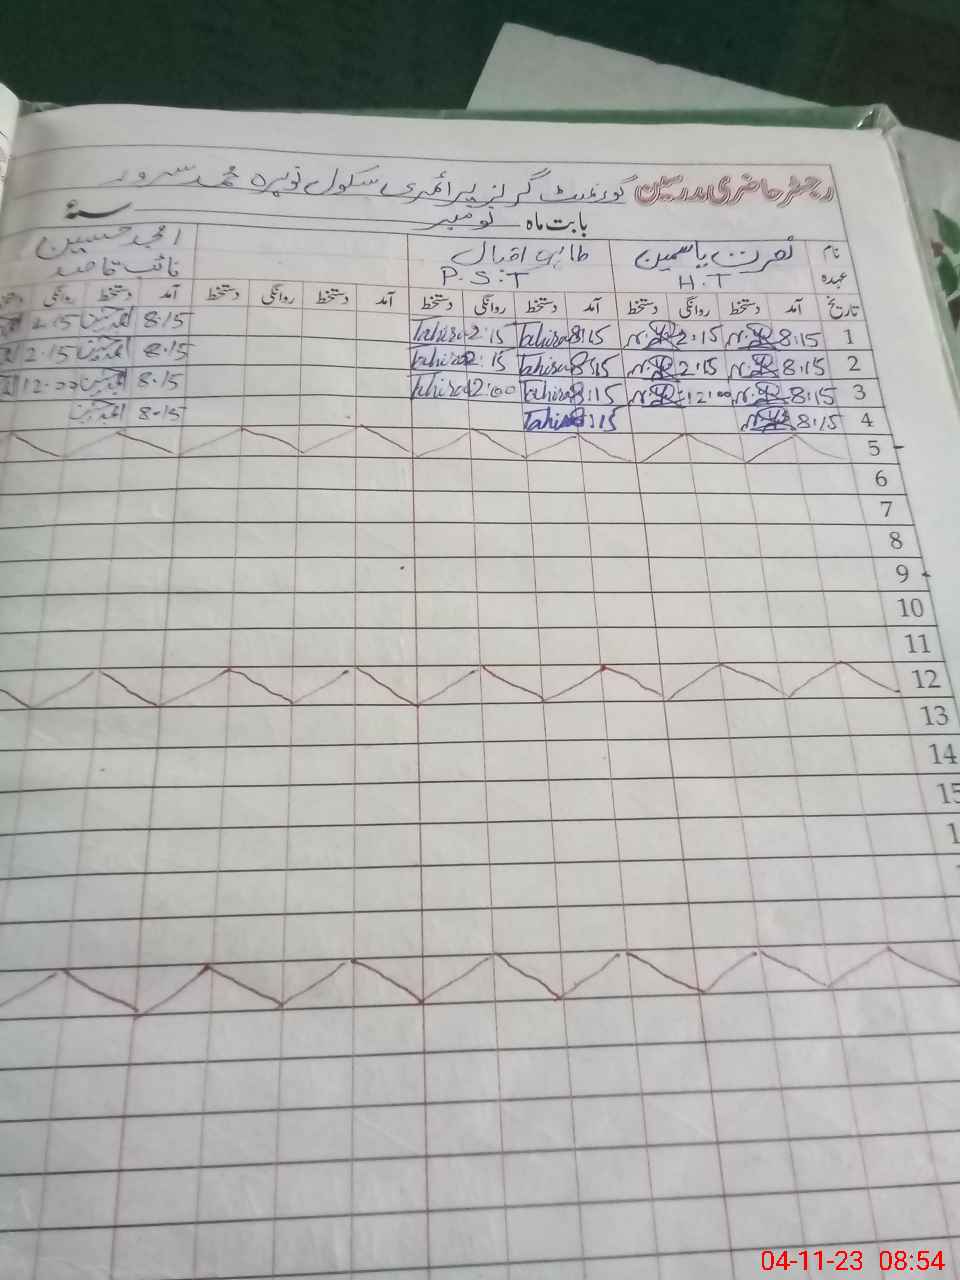 رجسٹر حاضری مدرسین گورنمنٹ گرلز پرائمری سکول نوپره محمد سرور
بابت ماہ نومبر سنہ
نام نصرت یاسمین طاہرہ اقبال امجد حسین
عہدہ H.T P.S.T نائب قاصد
تاریخ آمد دستخط روانگی دستخط آمد دستخط روانگی دستخط آمد دستخط روانگی دستخط آمد دستخط روانگی
1 8:15 2:15 8:15 Tahira 2:15 Tahira 8:15 2:15
2 8:15 2:15 8:15 Tahira 2:15 Tahira 8:15 2:15
3 8:15 12:00 8:15 Tahira 12:00 Tahira 8:15 12:00
4 8:15 8:15 Tahira 8:15
5
6
7
8
9
10
11
12
13
14
15
04-11-23 08:54